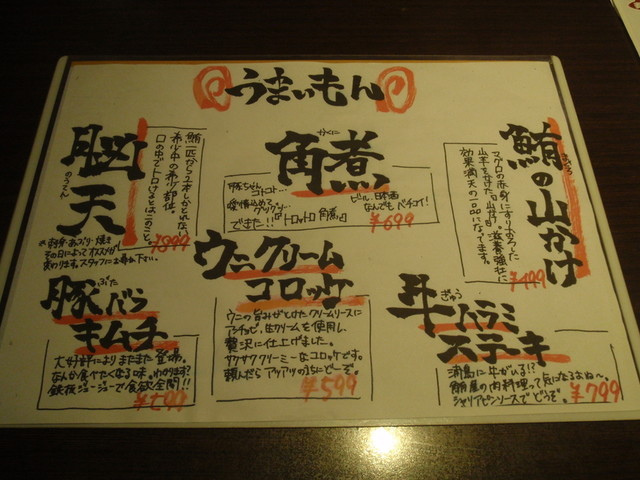 うまいもん
鮪の山かけ
まぐろ
マグロの赤身にすりおろした
山芋をかけた山かけ。滋養強壮に
効果満天の一品になってます。
¥499
角煮
かくに
豚ちゃん
コトコト…
愛情込めて
グツグツ…
できた!!『トロットロ角煮』
ビール、日本酒
なんでもバチコイ!
¥699
脳天
のうてん
鮪一匹から2本しかとれない
希少中の希少部位。
口の中でトロけるとはこのこと。
¥999
※刺身・あぶり・焼き
その日によってオススメが
変わります。スタッフにお尋ね下さい。
ウニクリーム
コロッケ
ウニの旨みがとけたクリームソースに
アンチョビ、生クリームを使用し、
贅沢に仕上げました。
サクサククリーミーなコロッケです。
頼んだらアツアツのうちにどーぞ。
¥599
牛ハラミ
ぎゅう
ステーキ
浦島に牛がいる!?
鮪屋の肉料理って気になるよね〜。
シャリアピンソースでどうぞ。
¥799
豚バラ
ぶた
キムチ
大好評によりまたまた登場。
なんか食べたくなる味。わかります?
鉄板ジュージューで食欲全開!!